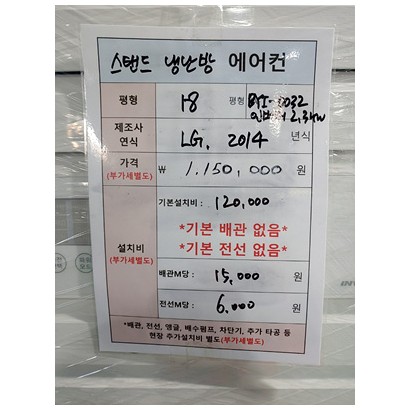 스탠드 냉난방 에어컨
평형 18 평형
인버터 2.3kw
제조사 연식 LG, 2014 년식
가격 (부가세별도) ₩ 1,150,000 원
기본설치비 : 120,000
*기본 배관 없음*
*기본 전선 없음*
설치비 (부가세별도)
배관M당 : 15,000 원
전선M당 : 6,000 원
*배관, 전선, 앵글, 배수펌프, 차단기, 추가 타공 등
현장 추가설치비 별도(부가세별도)